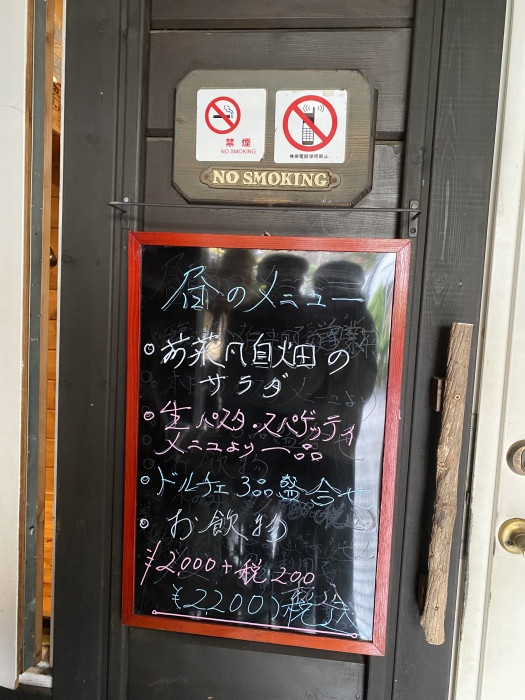 禁煙
NO SMOKING
携帯電話使用禁止
NO SMOKING
昼のメニュー
前菜凡自畑の
サラダ
生パスタ・スパゲッティ
メニューより一品
ドルチェ3品盛合せ
お飲物
¥2,000+税200
¥2200税込